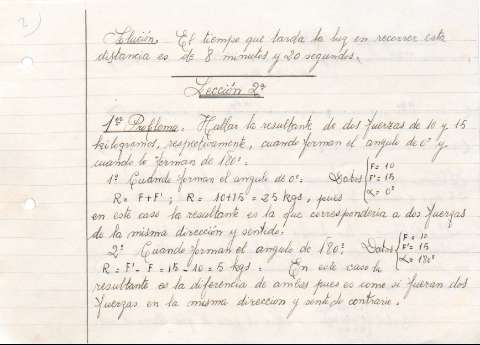 2)
Solución. El tiempo que tarda la luz en recorrer esta
distancia es de 8 minutos y 20 segundos.
Lección 2ª
1er Problema. Hallar la resultante de dos fuerzas de 10 y 15
kilogramos, respectivamente, cuando forman el angulo de 0º y
cuando lo forman de 180º.
1º Cuando forman el angulo de 0º. Datos { F = 10
F' = 15
α = 0º
R = F + F' ; R = 10 + 15 = 25 kgs, pues
en este caso la resultante es la que correspondería a dos fuerzas
de la misma dirección y sentido.
2º Cuando forman el angulo de 180º. Datos { F = 10
F' = 15
α = 180º
R = F' - F = 15 - 10 = 5 kgs. En este caso la
resultante es la diferencia de ambas pues es como si fueran dos
fuerzas en la misma direccion y sentido contrario.